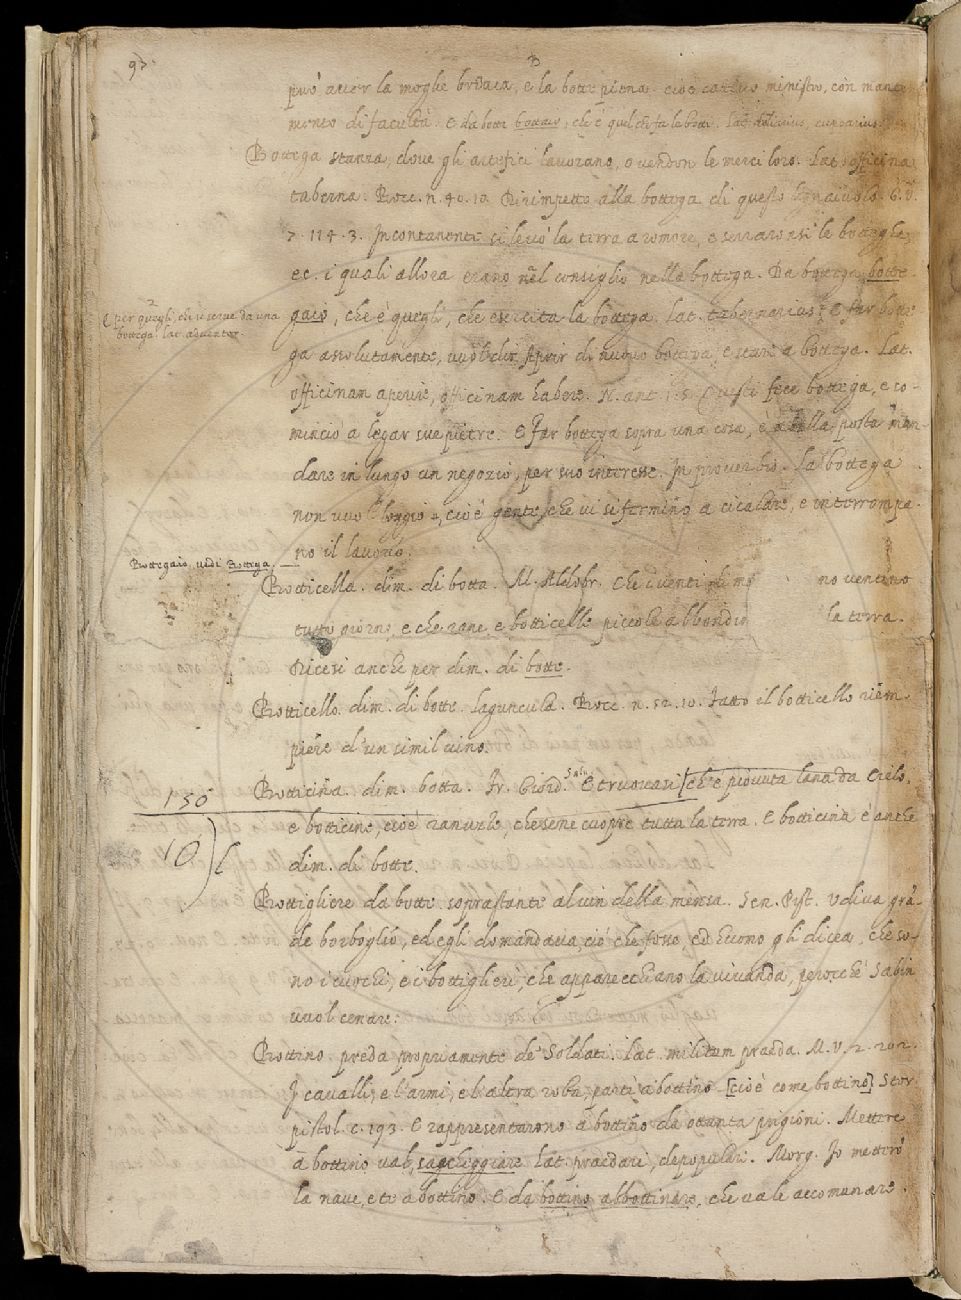 97.
B
può aver la moglie briaca, e la botte piena. cioè cattivo ministro, con mante
mento di facultà. E da botti bottaio, che è quel che fa le botti. Lat. doliarius, cuparius.
Bottega stanza, dove gli artefici lavorano, o vendon le merci loro. Lat. officina
taberna. Bocc. n. 40. 10. Dirimpetto alla bottega di questo legnaiuolo. G. V.
7. 114. 3. Incontanente si levò la terra a romore, e serraronsi le botteghe,
ec. i quali allora erano nel consiglio nella bottega. Da bottega botte
gaio, che è quegli, che esercita la bottega. Lat. tabernarius. E far botte
E per quegli, che si serve da una
bottega. lat. adventor.
ga assolutamente, vuol dir aprir di nuovo bottega, e stare a bottega. Lat.
officinam aperire, officinam habere. N. ant. fece bottega, e co-
minciò a legar sue pietre. E far bottega sopra una cosa, è alla posta man-
dare in lungo un negozio, per suo interesse. In proverbio. La bottega
non vuol loggio, cioè gente, che vi si fermino a cicalare, e interrompa-
no il lavorio.
Bottegaio, vedi Bottega.
Botticella. dim. di botta. M. Aldobr. Che no ventino
tutto giorno, e che rane, e botticelle piccole abbondino la terra.
Dicesi anche per dim. di botte.
Botticello. dim. di botte. laguncula. Bocc. n. 52. 10. Fatto il botticello riem-
piere d'un simil vino.
Botticina. dim. botta. Fr. Giord. Salv. E truovasi [ch'è piovuta lana da Cielo,
150
e botticine, cioè ranuzze, che sene cuopre tutta la terra. E botticina è anche
10
dim. di botte.
Bottigliere da botte soprastante al vin della mensa. Sen. Pist. Udiva grã-
de borboglio, ed egli domandava, ciò che fosse, ed huomo gli dicea, che so-
no i cuochi, e i bottiglieri, che apparecchiano la vivanda, perocchè Sabin
vuol cenare.
Bottino preda propriamente de' Soldati. Lat. militum praeda. M. V. 2. 20 2.
I cavalli, e l'armi, e l'altra roba, partì a bottino [cioè come bottino] Stor.
pistol. c. 193. E rappresentarono a bottino da ottanta prigioni. Mettere
a bottino val, saccheggiare Lat. praedari, depopulari. Morg. Io metterò
la nave, e te a bottino. E da bottino abbottinare, che vale accomunare.